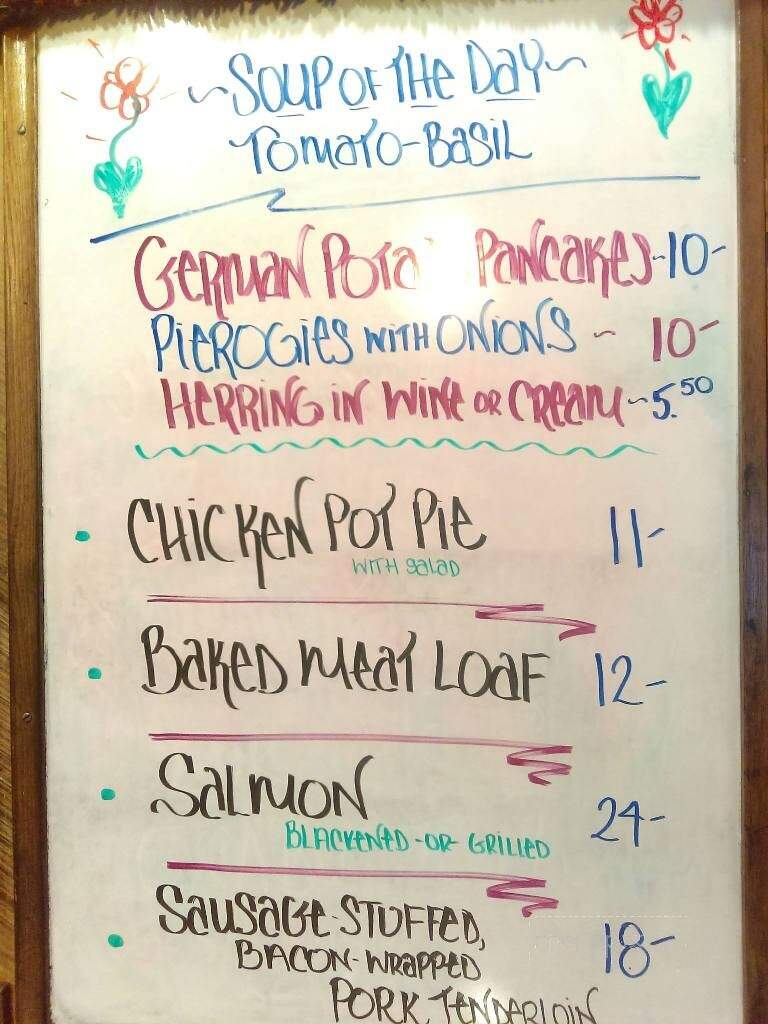 ~SOUP OF THE DAY~
TOMATO-BASIL
GERMAN POTA PANCAKES-10-
PIEROGIES WITH ONIONS ~ 10-
HERRING IN WINE OR CREAM ~5.50
CHICKEN POT PIE 11-
WITH SALAD
BAKED MEAT LOAF 12-
SALMON 24-
BLACKENED -OR- GRILLED
SAUSAGE-STUFFED,
BACON-WRAPPED 18-
PORK TENDERLOIN